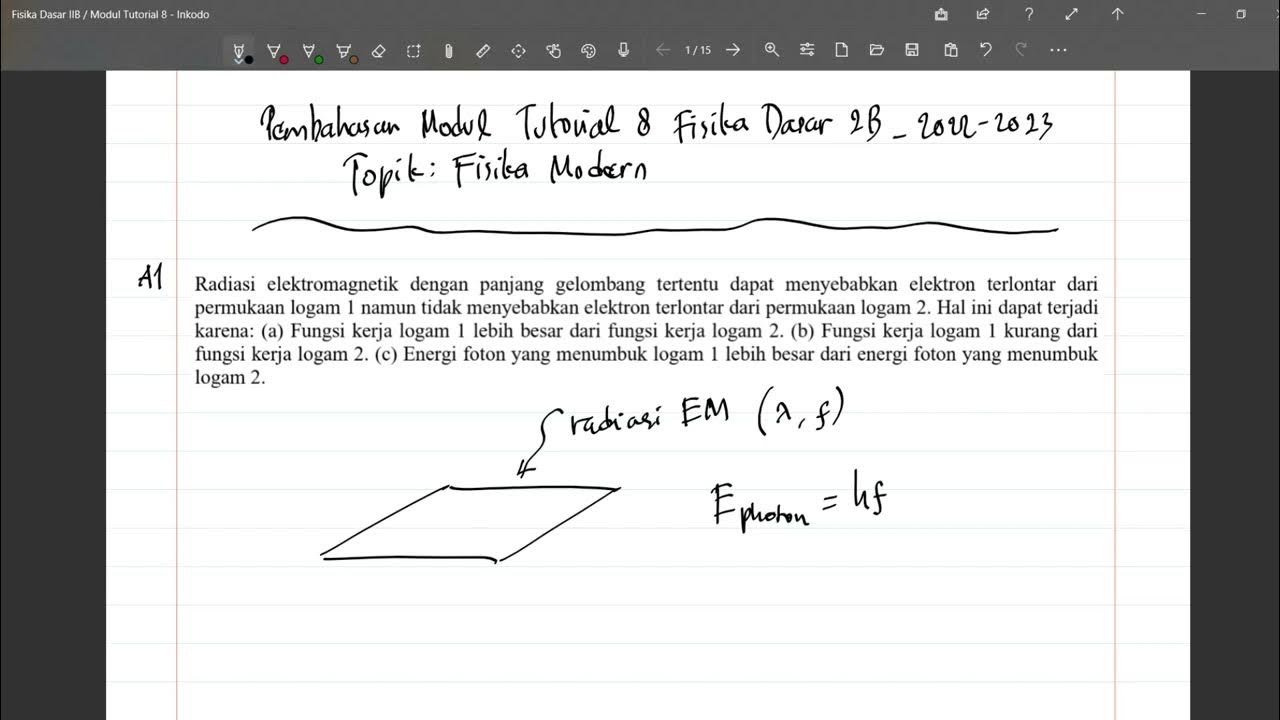 Fisika Dasar IIB / Modul Tutorial 8 - Inkodo
1 / 15
Pembahasan Modul Tutorial 8 Fisika Dasar 2B - 2022-2023
Topik: Fisika Modern
A1
Radiasi elektromagnetik dengan panjang gelombang tertentu dapat menyebabkan elektron terlontar dari
permukaan logam 1 namun tidak menyebabkan elektron terlontar dari permukaan logam 2. Hal ini dapat terjadi
karena: (a) Fungsi kerja logam 1 lebih besar dari fungsi kerja logam 2. (b) Fungsi kerja logam 1 kurang dari
fungsi kerja logam 2. (c) Energi foton yang menumbuk logam 1 lebih besar dari energi foton yang menumbuk
logam 2.
radiasi EM (λ, f)
E photon = hf